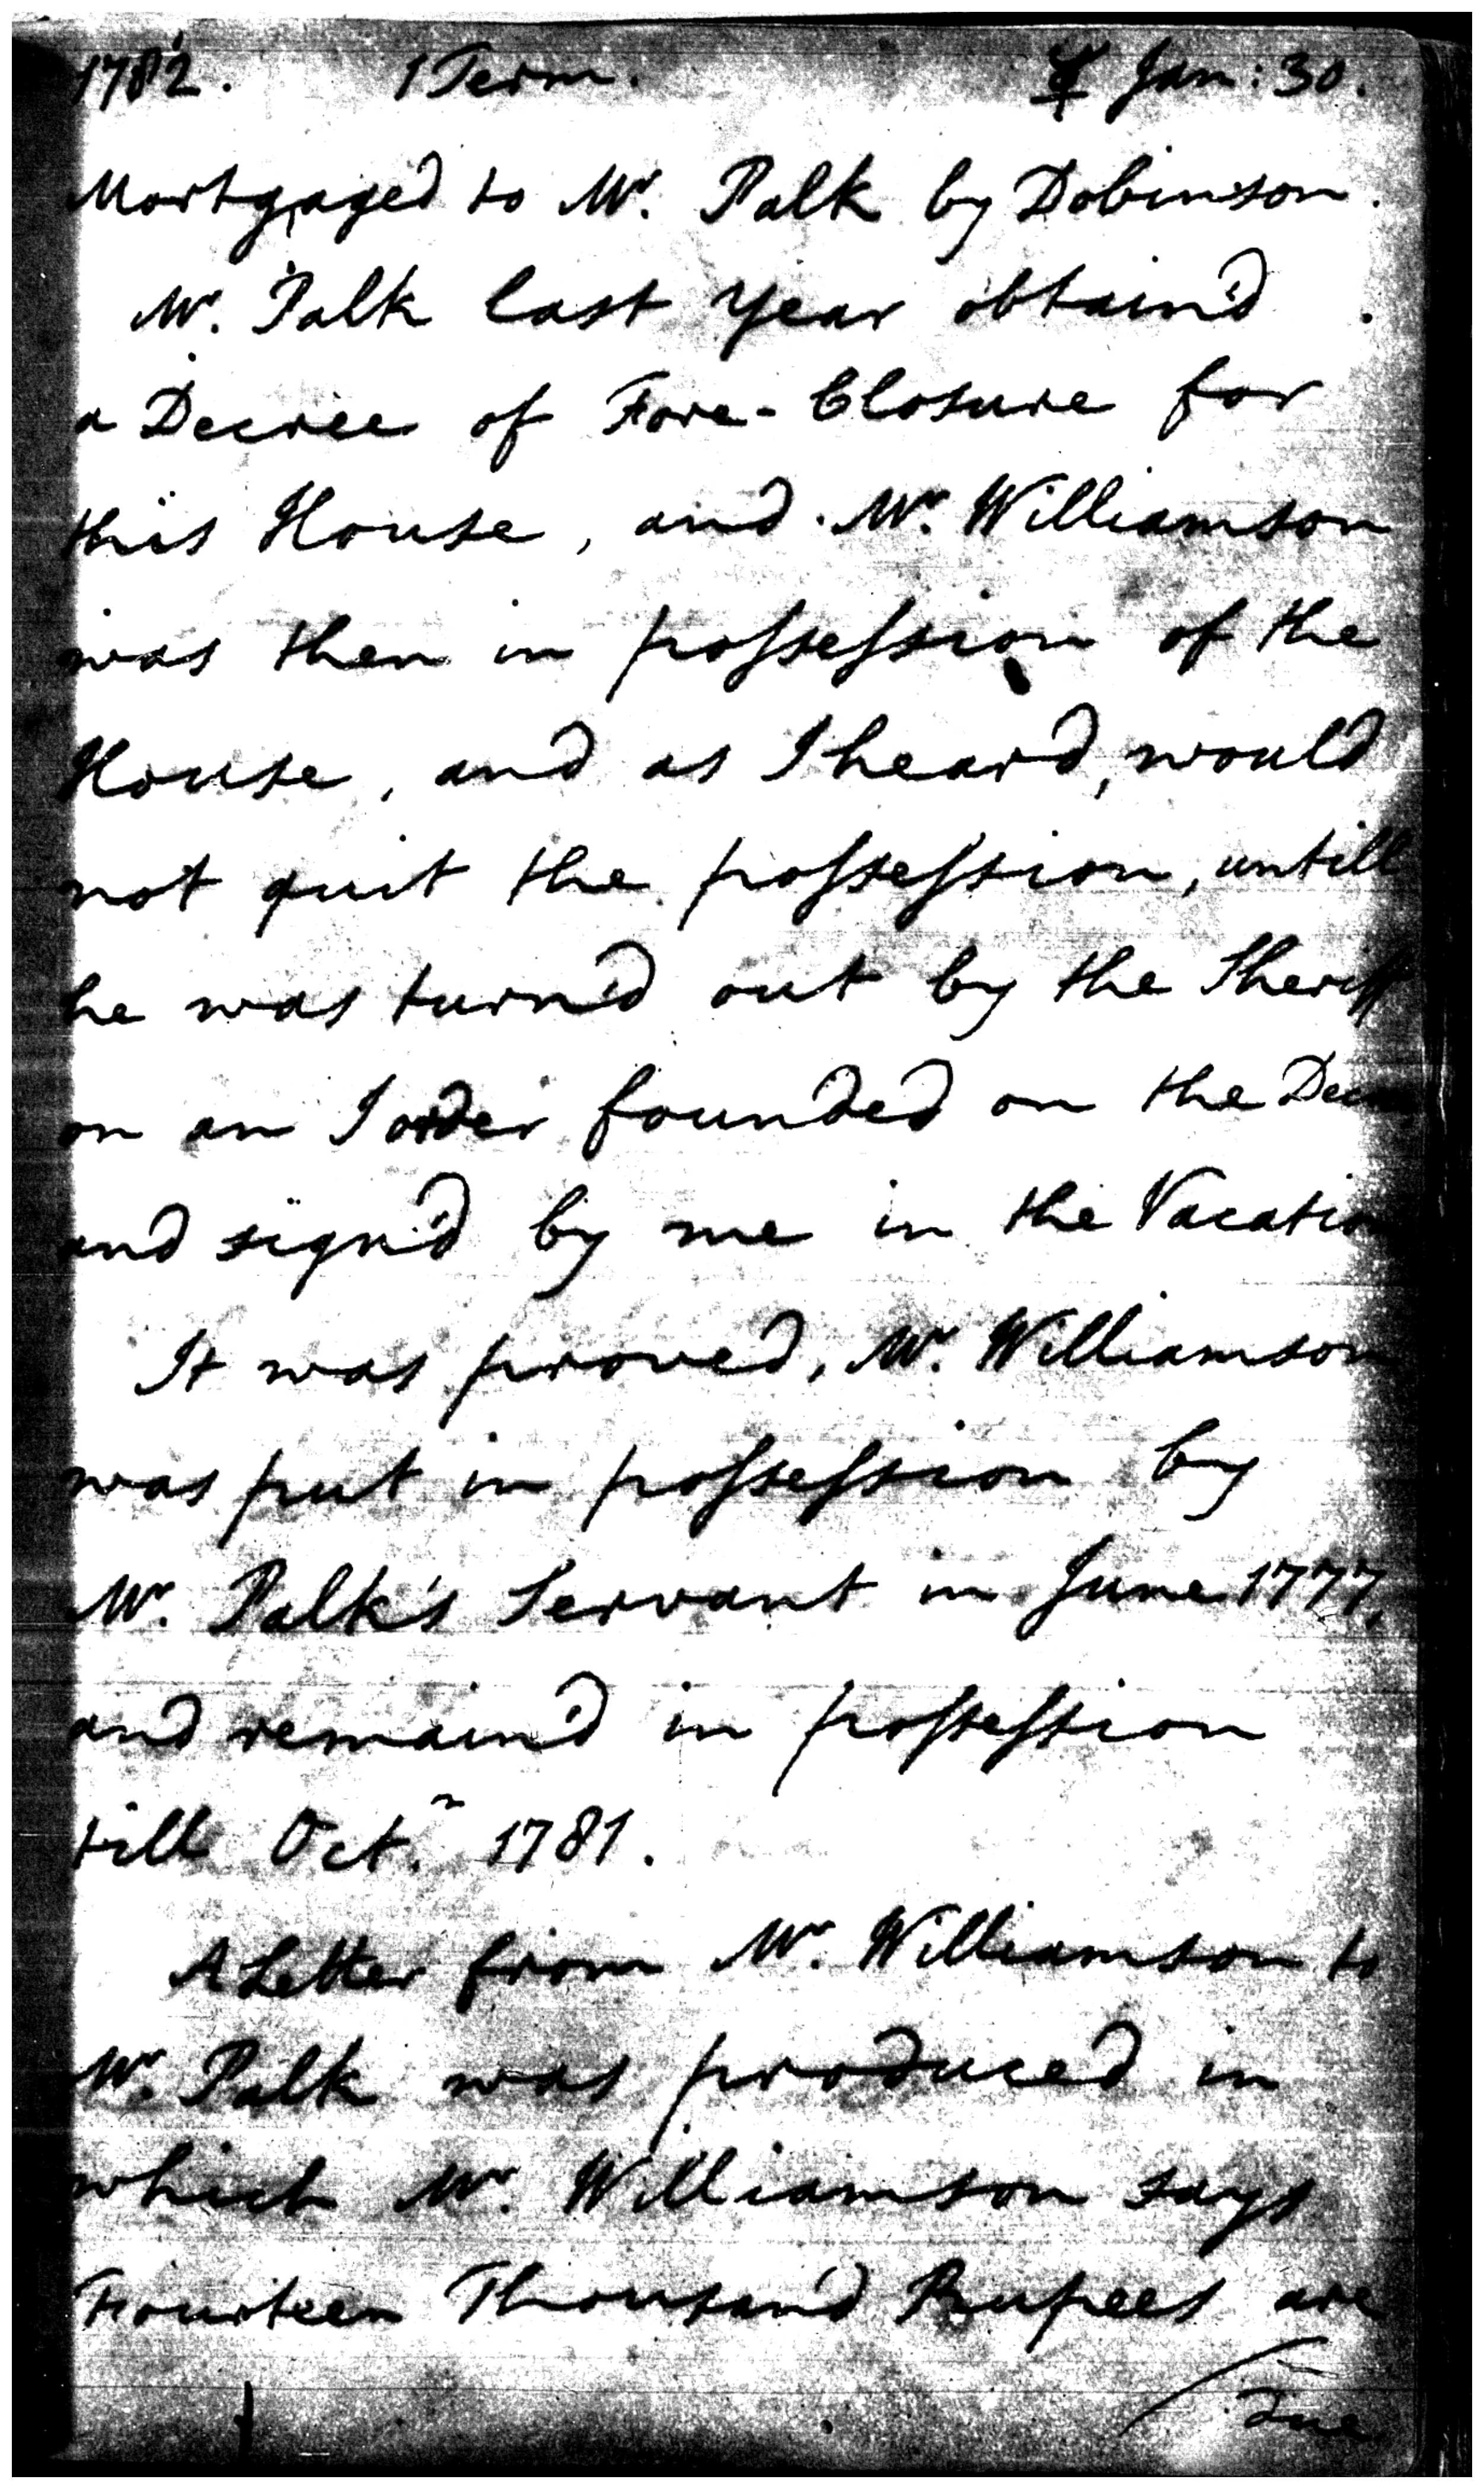 1782. 1 Term. ☿ Jan: 30.
Mortgaged to Mr. Palk by Dobinson.
Mr. Palk last year obtain'd
a Decree of Fore-Closure for
this House, and Mr. Williamson
was then in possession of the
House, and as I heard, would
not quit the possession, untill
he was turn'd out by the Sheriff
on an Order founded on the
and sign'd by me in the Vacation
It was proved, Mr. Williamson
was put in possession by
Mr. Palk's Servant in June 1777,
and remain'd in possession
till Octr. 1781.
A Letter from Mr. Williamson to
Mr. Palk was produced in
which Mr. Williamson says
Fourteen Thousand Rupees are
due